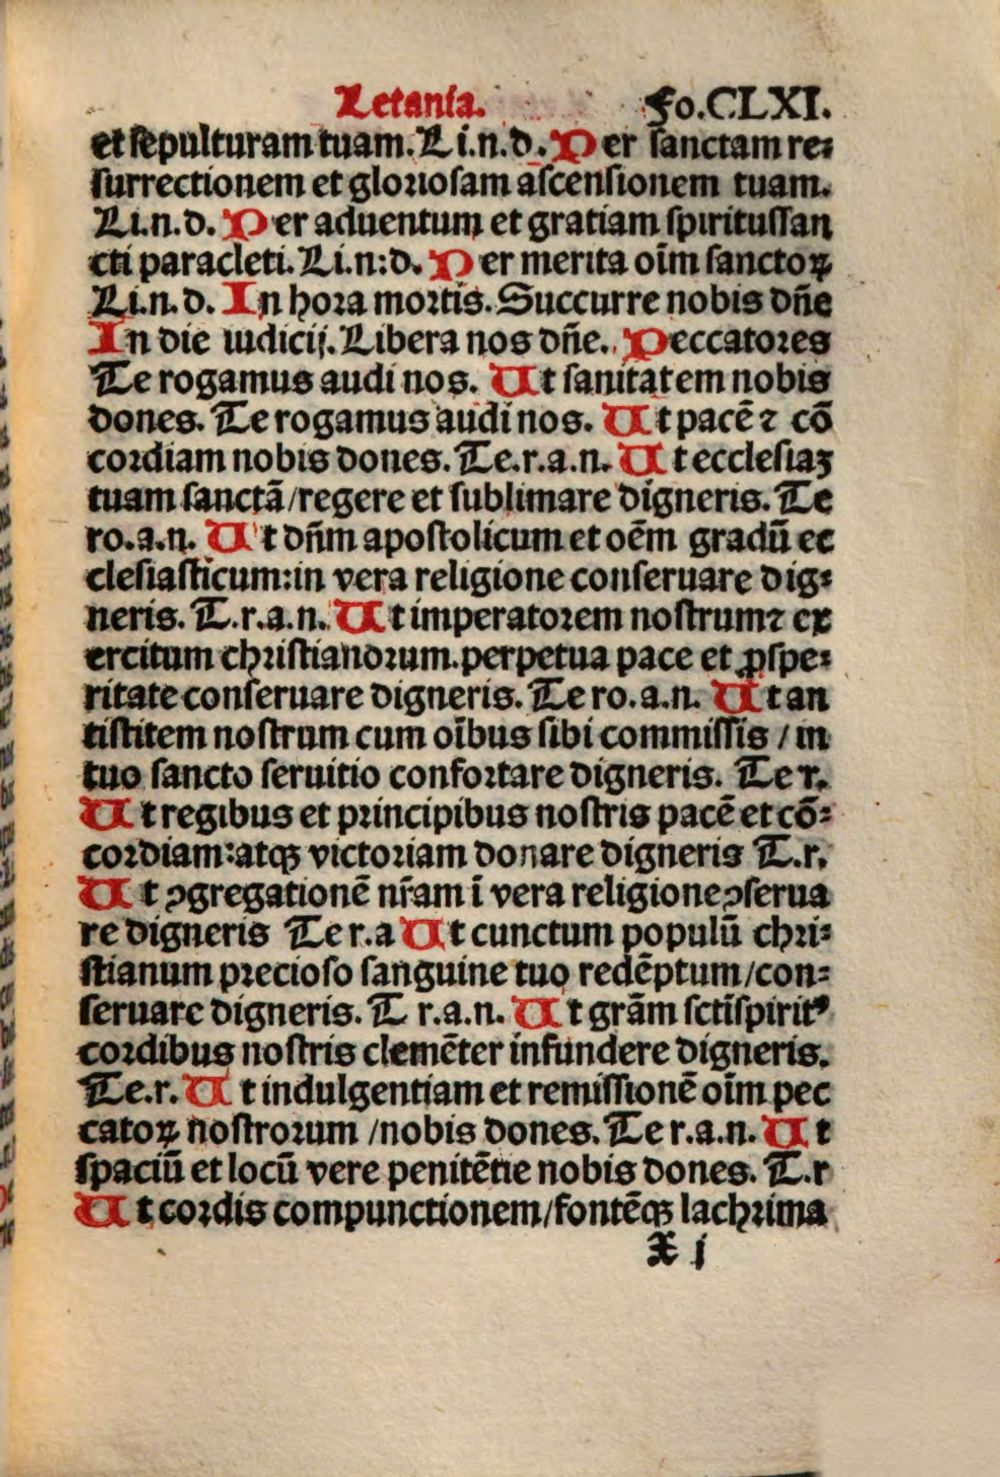 Letania. Fo.CLXI.
et sepulturam tuam. Li.n.d. Per sanctam re⸗
surrectionem et gloriosam ascensionem tuam.
Li.n.d. Per aduentum et gratiam spiritussan
cti paracleti. Li.n:d. Per merita oīm sanctoꝝ
Li.n.d. In hora mortis. Succurre nobis dn̄e
In die iudicij. Libera nos dn̄e. Peccatores
Te rogamus audi nos. Ut sanitatem nobis
dones. Te rogamus audi nos. Ut pacē ⁊ cō
cordiam nobis dones. Te.r.a.n. Ut ecclesiaꝫ
tuam sanctā/regere et sublimare digneris. Te
ro.a.n. Ut dn̄m apostolicum et oēm gradū ec
clesiasticum:in vera religione conseruare dig⸗
neris. T.r.a.n. Ut imperatorem nostrum⁊ ex
ercitum christianorum.perpetua pace et ꝓspe⸗
ritate conseruare digneris. Te ro.a.n. Ut an
tistitem nostrum cum oībus sibi commissis / in
tuo sancto seruitio confortare digneris. Te r.
Ut regibus et principibus nostris pacē et cō⸗
cordiam:atqꝫ victoriam donare digneris T.r.
Ut ꝯgregationē nr̄am ī vera religione ꝯserua
re digneris Te r.a Ut cunctum populū chri⸗
stianum precioso sanguine tuo redēptum/con⸗
seruare digneris. T r.a.n. Ut grām sctīspiritꝰ
cordibus nostris clemēter infundere digneris.
Te.r. Ut indulgentiam et remissionē oīm pec
catoꝝ nostrorum /nobis dones. Te r.a.n. Ut
spaciū et locū vere penitētie nobis dones. T.r
Ut cordis compunctionem/fontēqꝫ lachrima
X j